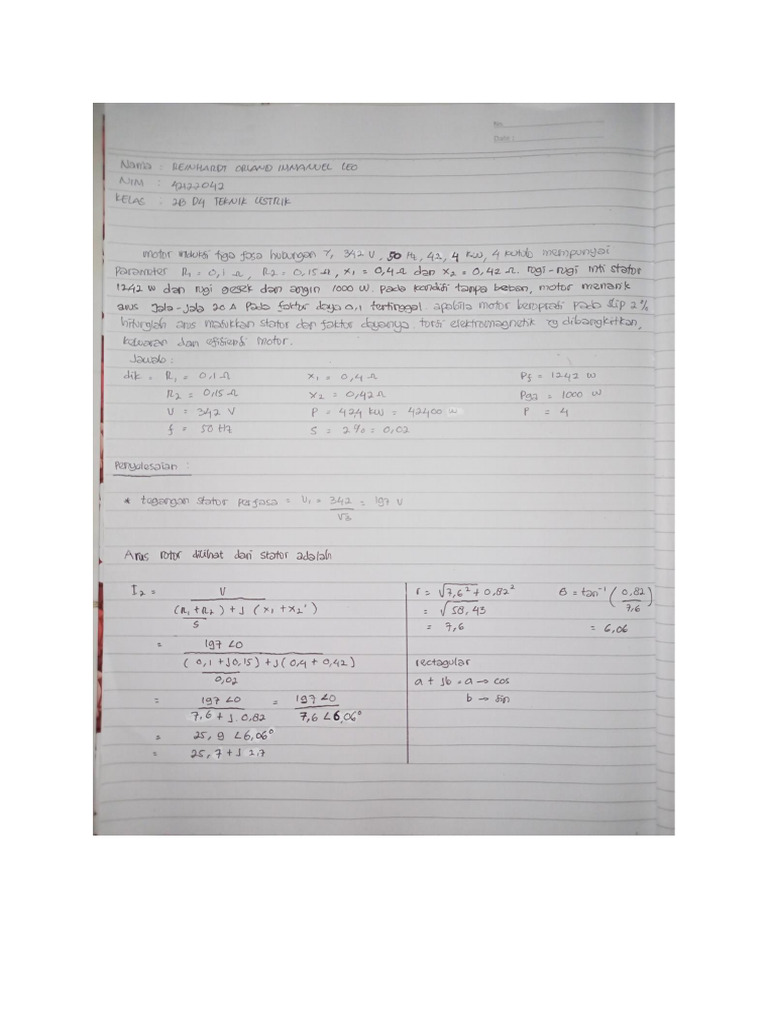 No.
Date :
Nama : REINHARDT ORLAND IMMANUEL LEO
NIM : 42122042
KELAS : 2B D4 TEKNIK LISTRIK
motor induksi tiga fasa hubungan Y, 342 V, 50 Hz, 42, 4 KW, 4 kutub mempunyai
Parameter R1 = 0,1 Ω, R2 = 0,15 Ω, x1 = 0,4 Ω dan x2 = 0,42 Ω. rugi-rugi inti stator
1242 W dan rugi gesek dan angin 1000 W. Pada kondisi tanpa beban, motor menarik
arus Jala-jala 20 A Pada faktor daya 0,1 tertinggal. apabila motor beroprasi pada slip 2%
hitunglah arus masukkan stator dan faktor dayanya. torsi elektromagnetik yg dibangkitkan,
keluaran dan efisiensi motor.
Jawab :
dik = R1 = 0,1 Ω x1 = 0,4 Ω Pg = 1242 W
R2 = 0,15 Ω x2 = 0,42 Ω Pga = 1000 W
U = 342 V P = 42,4 kW = 42400 W P = 4
f = 50 Hz S = 2% = 0,02
Penyelesaian :
* tegangan stator perfasa = V1 = 342/√3 = 197 V
Arus rotor dilihat dari stator adalah
I2 = V / (R1 + R2')/S + J (x1 + x2') r = √7,6² + 0,82² θ = tan⁻¹ (0,82/7,6)
= √58,43
= 7,6 = 6,06
= 197 ∠0 / (0,1 + J0,15)/0,02 + J(0,4 + 0,42) rectagular
a + Jb = a → cos
= 197 ∠0 / 7,6 + J. 0,82 = 197 ∠0 / 7,6 ∠6,06° b → sin
= 25,9 ∠6,06°
= 25,7 + J 2,7